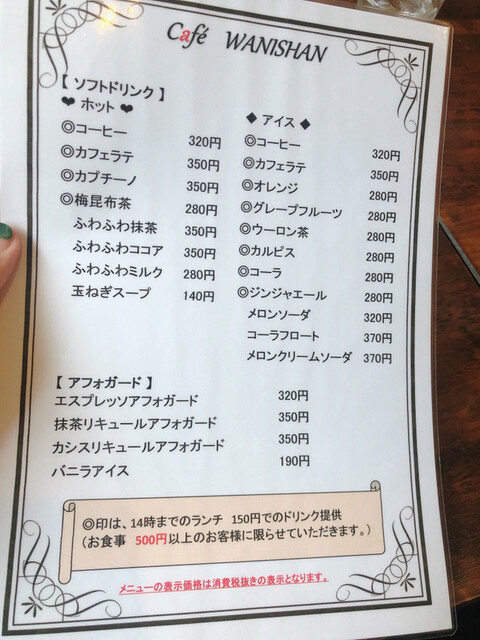 Café WANISHAN
【 ソフトドリンク 】
❤ ホット ❤
◎コーヒー 320円
◎カフェラテ 350円
◎カプチーノ 350円
◎梅昆布茶 280円
ふわふわ抹茶 350円
ふわふわココア 350円
ふわふわミルク 280円
玉ねぎスープ 140円
◆ アイス ◆
◎コーヒー 320円
◎カフェラテ 350円
◎オレンジ 280円
◎グレープフルーツ 280円
◎ウーロン茶 280円
◎カルピス 280円
◎コーラ 280円
◎ジンジャエール 280円
メロンソーダ 320円
コーラフロート 370円
メロンクリームソーダ 370円
【 アフォガード 】
エスプレッソアフォガード 320円
抹茶リキュールアフォガード 350円
カシスリキュールアフォガード 350円
バニラアイス 190円
◎印は、14時までのランチ 150円でのドリンク提供
（お食事 500円以上のお客様に限らせていただきます。）
メニューの表示価格は消費税抜きの表示となります。